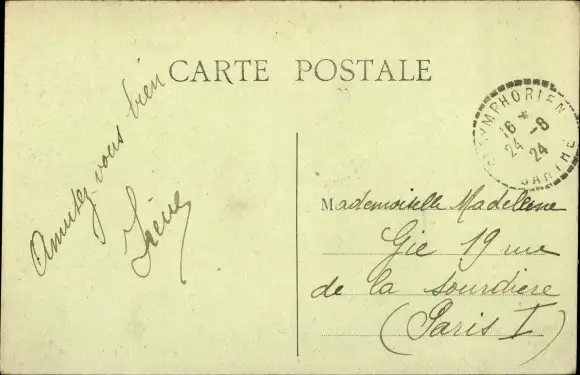 CARTE POSTALE
Amusez-vous bien
Irène
ST SYMPHORIEN
16 *
24 -8
24
SARTHE
Mademoiselle Madeleine
Gie 19 rue
de la Sourdière
(Paris I)